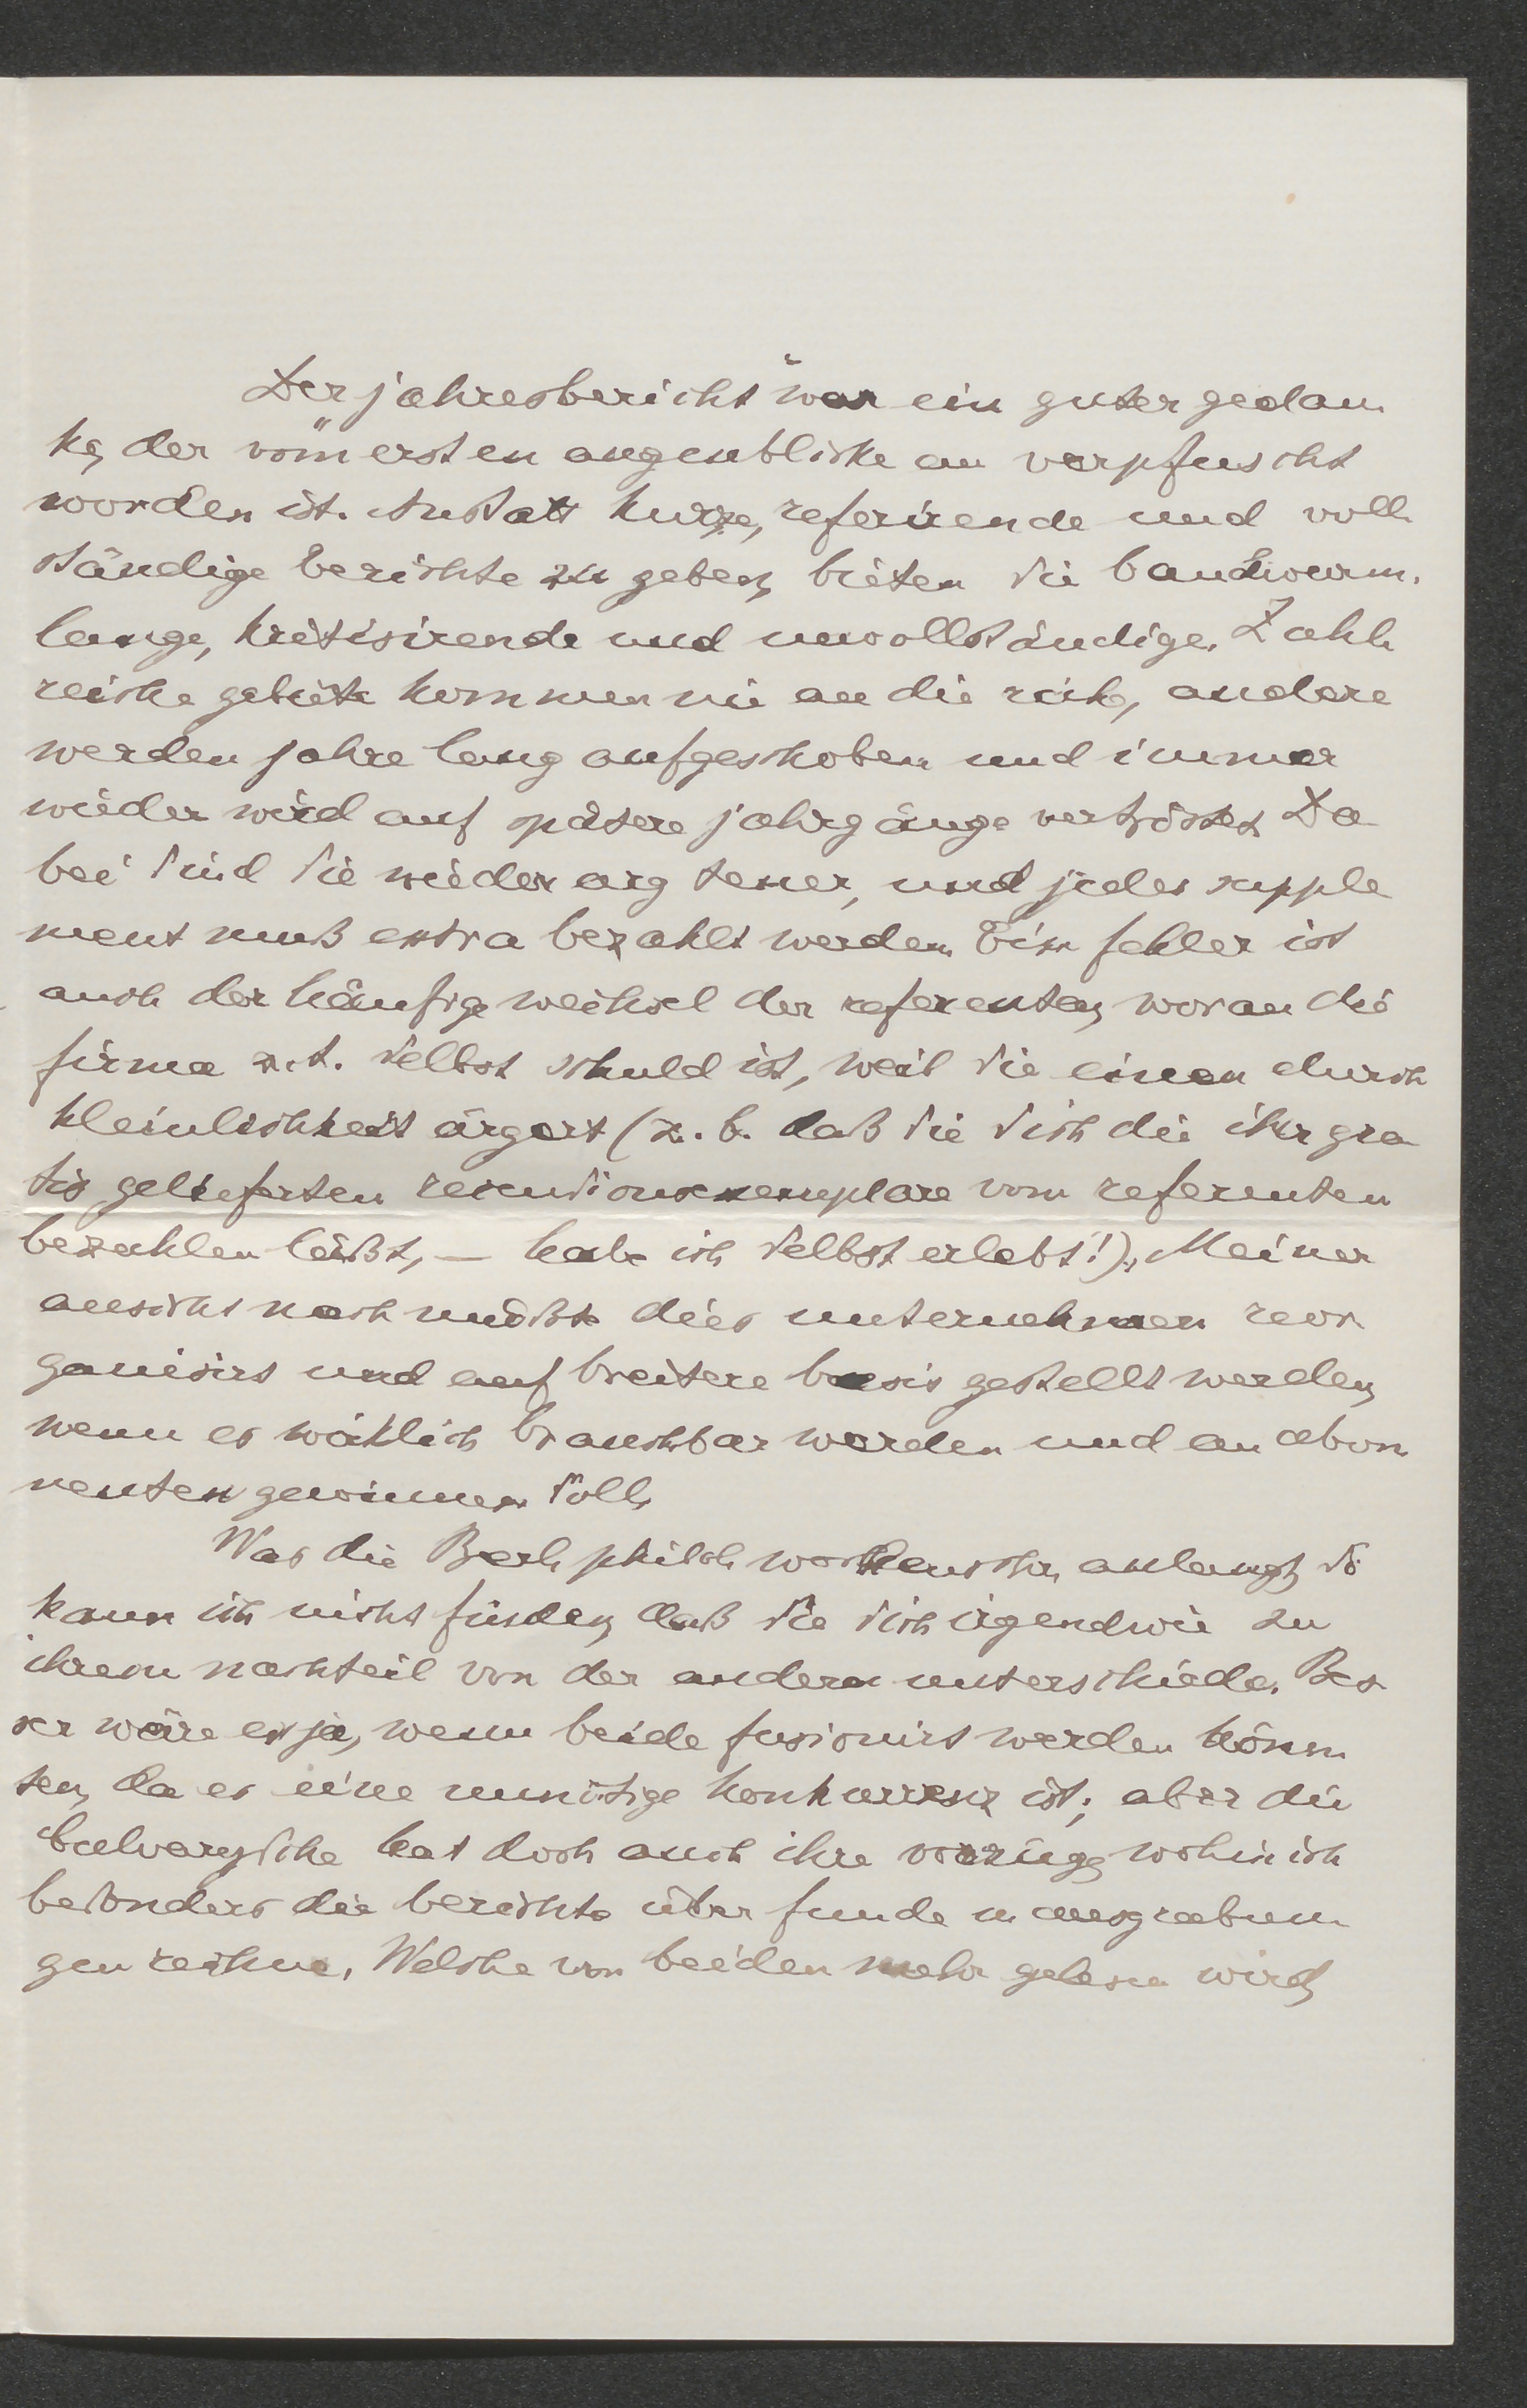 Der jahresbericht war ein guter gedan
ke, der vom ersten augenblicke an verpfuscht
worden ist. Anstatt kurze, referirende und voll
ständige berichte zu geben, bieten sie bandwurm.
lange, kritisirende und unvollständige. Zahl
reiche gebiete kommen nie an die reihe, andere
werden jahre lang aufgeschoben und immer
wieder wird auf spätere jahrgänge vertröstet. Da
bei sind sie wieder arg teuer, und jedes supple
ment muß extra bezahlt werden. Ein fehler ist
auch der häufige wechsel der referenten, woran die
firma z. t. selbst schuld ist, weil sie einen durch
kleinlichkeit ärgert (z. b. daß sie sich die ihr gra
tis gelieferten recensionsexemplare vom referenten
bezahlen läßt, — habe ich selbst erlebt!). Meiner
ansicht nach müßte dies unternehmen reor
ganisirt und auf breitere basis gestellt werden,
wenn es wirklich brauchbar werden und an abon
nenten gewinnen soll.
Was die Berl. philol. wochenschr. anlangt, so
kann ich nicht finden, daß sie sich irgendwie zu
ihrem nachteil von der andern unterschiede. Bes
ser wäre es ja, wenn beide fusionirt werden könn
ten, da es eine unnötige konkurrenz ist; aber die
Calvarysche hat doch auch ihre vorzüge, wohin ich
besonders die berichte über funde u. ausgrabun
gen rechne. Welche von beiden mehr gelesen wird,